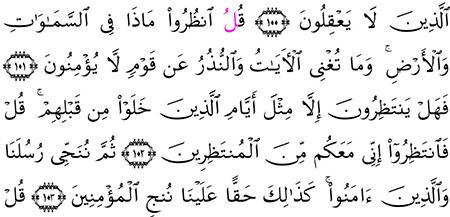 ٱلَّذِينَ لَا يَعۡقِلُونَ ١٠٠ قُلُ ٱنظُرُواْ مَاذَا فِي ٱلسَّمَٰوَٰتِ
وَٱلۡأَرۡضِۚ وَمَا تُغۡنِي ٱلۡأٓيَٰتُ وَٱلنُّذُرُ عَن قَوۡمٖ لَّا يُؤۡمِنُونَ ١٠١
فَهَلۡ يَنتَظِرُونَ إِلَّا مِثۡلَ أَيَّامِ ٱلَّذِينَ خَلَوۡاْ مِن قَبۡلِهِمۡۚ قُلۡ
فَٱنتَظِرُوٓاْ إِنِّي مَعَكُم مِّنَ ٱلۡمُنتَظِرِينَ ١٠٢ ثُمَّ نُنَجِّي رُسُلَنَا
وَٱلَّذِينَ ءَامَنُواْۚ كَذَٰلِكَ حَقًّا عَلَيۡنَا نُنجِ ٱلۡمُؤۡمِنِينَ ١٠٣ قُلۡ